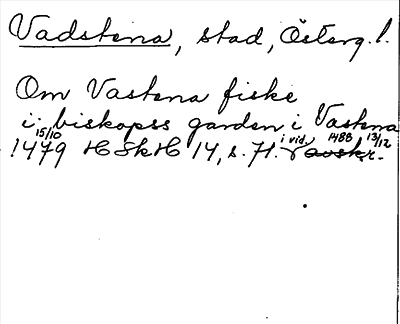 Vadstena, stad, Österg.l.
Om Vastena fiske
i biskopss garden i Vastena
1479 15/10 HSkH 14, s. 71. i vid. 1488 13/12 avskr.